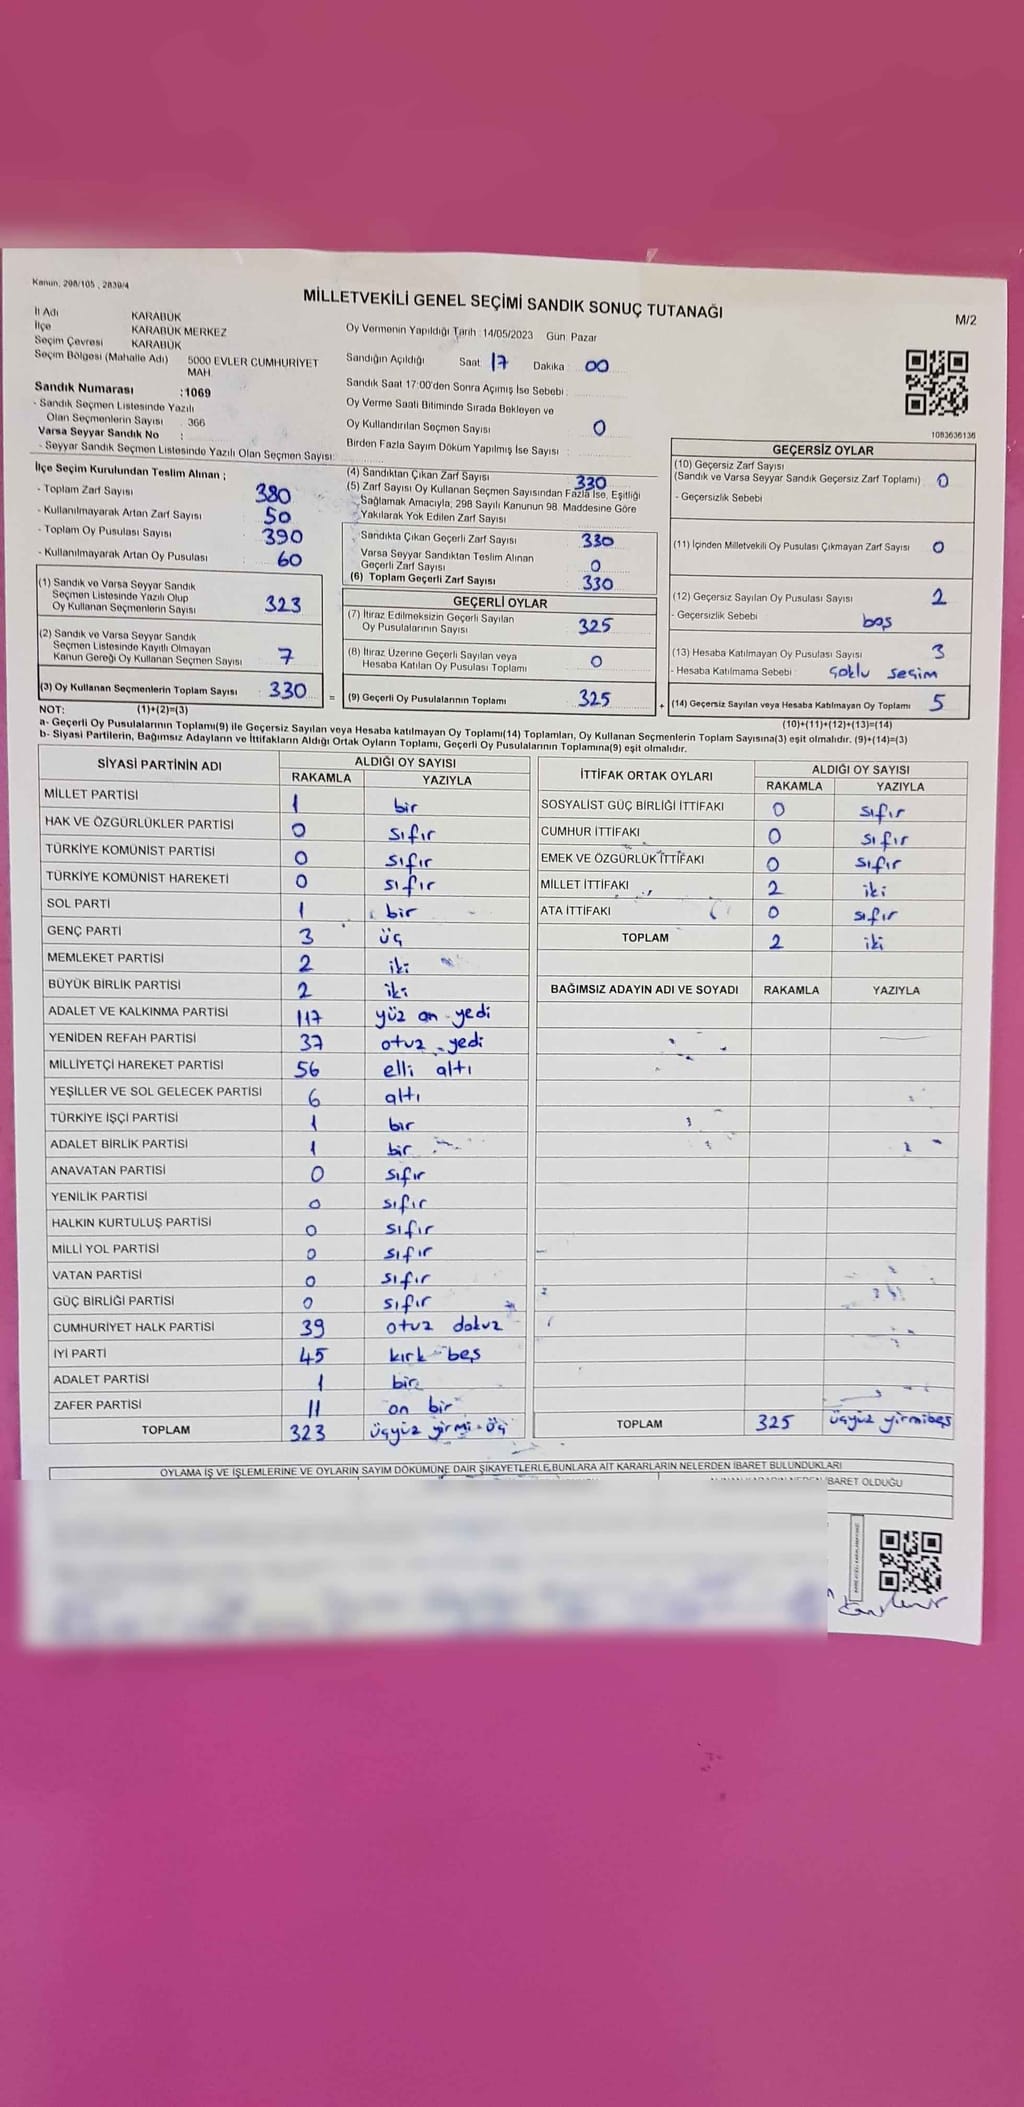 Kanun, 298/105 , 2839/4
MİLLETVEKİLİ GENEL SEÇİMİ SANDIK SONUÇ TUTANAĞI
M/2
İl Adı KARABÜK
İlçe KARABÜK MERKEZ
Seçim Çevresi KARABÜK
Seçim Bölgesi (Mahalle Adı) 5000 EVLER CUMHURİYET
MAH.
Sandık Numarası :1069
- Sandık Seçmen Listesinde Yazılı
Olan Seçmenlerin Sayısı : 366
Varsa Seyyar Sandık No :
- Seyyar Sandık Seçmen Listesinde Yazılı Olan Seçmen Sayısı:
Oy Vermenin Yapıldığı Tarih : 14/05/2023 Gün: Pazar
Sandığın Açıldığı Saat: 17 Dakika : 00
Sandık Saat 17:00'den Sonra Açımış İse Sebebi :
Oy Verme Saati Bitiminde Sırada Bekleyen ve
Oy Kullandırılan Seçmen Sayısı : 0
Birden Fazla Sayım Döküm Yapılmış İse Sayısı :
1083636136
İlçe Seçim Kurulundan Teslim Alınan ;
- Toplam Zarf Sayısı 380
- Kullanılmayarak Artan Zarf Sayısı 50
- Toplam Oy Pusulası Sayısı 390
- Kullanılmayarak Artan Oy Pusulası 60
(1) Sandık ve Varsa Seyyar Sandık
Seçmen Listesinde Yazılı Olup
Oy Kullanan Seçmenlerin Sayısı 323
(2) Sandık ve Varsa Seyyar Sandık
Seçmen Listesinde Kayıtlı Olmayan
Kanun Gereği Oy Kullanan Seçmen Sayısı 7
(3) Oy Kullanan Seçmenlerin Toplam Sayısı 330
(4) Sandıktan Çıkan Zarf Sayısı 330
(5) Zarf Sayısı Oy Kullanan Seçmen Sayısından Fazla İse, Eşitliği
Sağlamak Amacıyla, 298 Sayılı Kanunun 98. Maddesine Göre
Yakılarak Yok Edilen Zarf Sayısı
Sandıkta Çıkan Geçerli Zarf Sayısı 330
Varsa Seyyar Sandıktan Teslim Alınan
Geçerli Zarf Sayısı 0
(6) Toplam Geçerli Zarf Sayısı 330
GEÇERLİ OYLAR
(7) İtiraz Edilmeksizin Geçerli Sayılan
Oy Pusulalarının Sayısı 325
(8) İtiraz Üzerine Geçerli Sayılan veya
Hesaba Katılan Oy Pusulası Toplamı 0
= (9) Geçerli Oy Pusulalarının Toplamı 325
GEÇERSİZ OYLAR
(10) Geçersiz Zarf Sayısı
(Sandık ve Varsa Seyyar Sandık Geçersiz Zarf Toplamı) 0
- Geçersizlik Sebebi
(11) İçinden Milletvekili Oy Pusulası Çıkmayan Zarf Sayısı 0
(12) Geçersiz Sayılan Oy Pusulası Sayısı 2
- Geçersizlik Sebebi boş
(13) Hesaba Katılmayan Oy Pusulası Sayısı 3
- Hesaba Katılmama Sebebi : Çoklu seçim
+ (14) Geçersiz Sayılan veya Hesaba Katılmayan Oy Toplamı 5
NOT: (1)+(2)=(3)
(10)+(11)+(12)+(13)=(14)
a- Geçerli Oy Pusulalarının Toplamı(9) ile Geçersiz Sayılan veya Hesaba katılmayan Oy Toplamı(14) Toplamları, Oy Kullanan Seçmenlerin Toplam Sayısına(3) eşit olmalıdır. (9)+(14)=(3)
b- Siyasi Partilerin, Bağımsız Adayların ve İttifakların Aldığı Ortak Oyların Toplamı, Geçerli Oy Pusulalarının Toplamına(9) eşit olmalıdır.
SİYASİ PARTİNİN ADI ALDIĞI OY SAYISI
RAKAMLA YAZIYLA
MİLLET PARTİSİ 1 bir
HAK VE ÖZGÜRLÜKLER PARTİSİ 0 sıfır
TÜRKİYE KOMÜNİST PARTİSİ 0 sıfır
TÜRKİYE KOMÜNİST HAREKETİ 0 sıfır
SOL PARTİ 1 bir
GENÇ PARTİ 3 üç
MEMLEKET PARTİSİ 2 iki
BÜYÜK BİRLİK PARTİSİ 2 iki
ADALET VE KALKINMA PARTİSİ 117 yüz on yedi
YENİDEN REFAH PARTİSİ 37 otuz yedi
MİLLİYETÇİ HAREKET PARTİSİ 56 elli altı
YEŞİLLER VE SOL GELECEK PARTİSİ 6 altı
TÜRKİYE İŞÇİ PARTİSİ 1 bir
ADALET BİRLİK PARTİSİ 1 bir
ANAVATAN PARTİSİ 0 sıfır
YENİLİK PARTİSİ 0 sıfır
HALKIN KURTULUŞ PARTİSİ 0 sıfır
MİLLİ YOL PARTİSİ 0 sıfır
VATAN PARTİSİ 0 sıfır
GÜÇ BİRLİĞİ PARTİSİ 0 sıfır
CUMHURİYET HALK PARTİSİ 39 otuz dokuz
İYİ PARTİ 45 kırk beş
ADALET PARTİSİ 1 bir
ZAFER PARTİSİ 11 on bir
TOPLAM 323 üçyüz yirmi üç
İTTİFAK ORTAK OYLARI ALDIĞI OY SAYISI
RAKAMLA YAZIYLA
SOSYALİST GÜÇ BİRLİĞİ İTTİFAKI 0 sıfır
CUMHUR İTTİFAKI 0 sıfır
EMEK VE ÖZGÜRLÜK İTTİFAKI 0 sıfır
MİLLET İTTİFAKI 2 iki
ATA İTTİFAKI 0 sıfır
TOPLAM 2 iki
BAĞIMSIZ ADAYIN ADI VE SOYADI RAKAMLA YAZIYLA
TOPLAM 325 üçyüz yirmibeş
OYLAMA İŞ VE İŞLEMLERİNE VE OYLARIN SAYIM DÖKÜMÜNE DAİR ŞİKAYETLERLE,BUNLARA AİT KARARLARIN NELERDEN İBARET BULUNDUKLARI
İBARET OLDUĞU